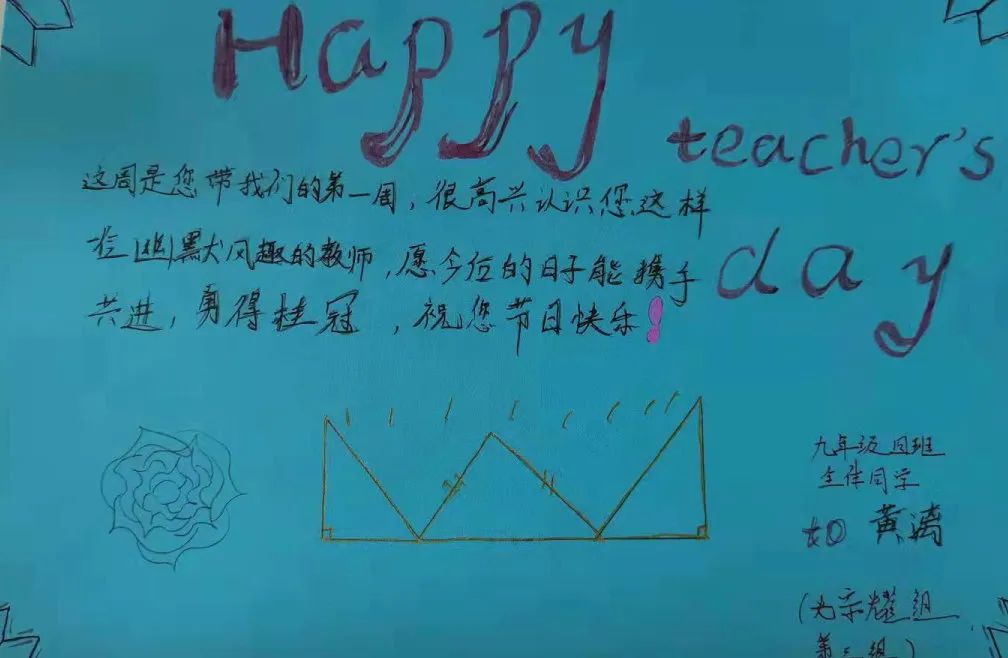 Happy
teacher's
day
这周是您带我们的第一周，很高兴认识您这样
位幽默风趣的教师，愿今后的日子能携手
共进，勇得桂冠，祝您节日快乐！
九年级四班
全体同学
to 黄漓
(光宗耀组
第三组)